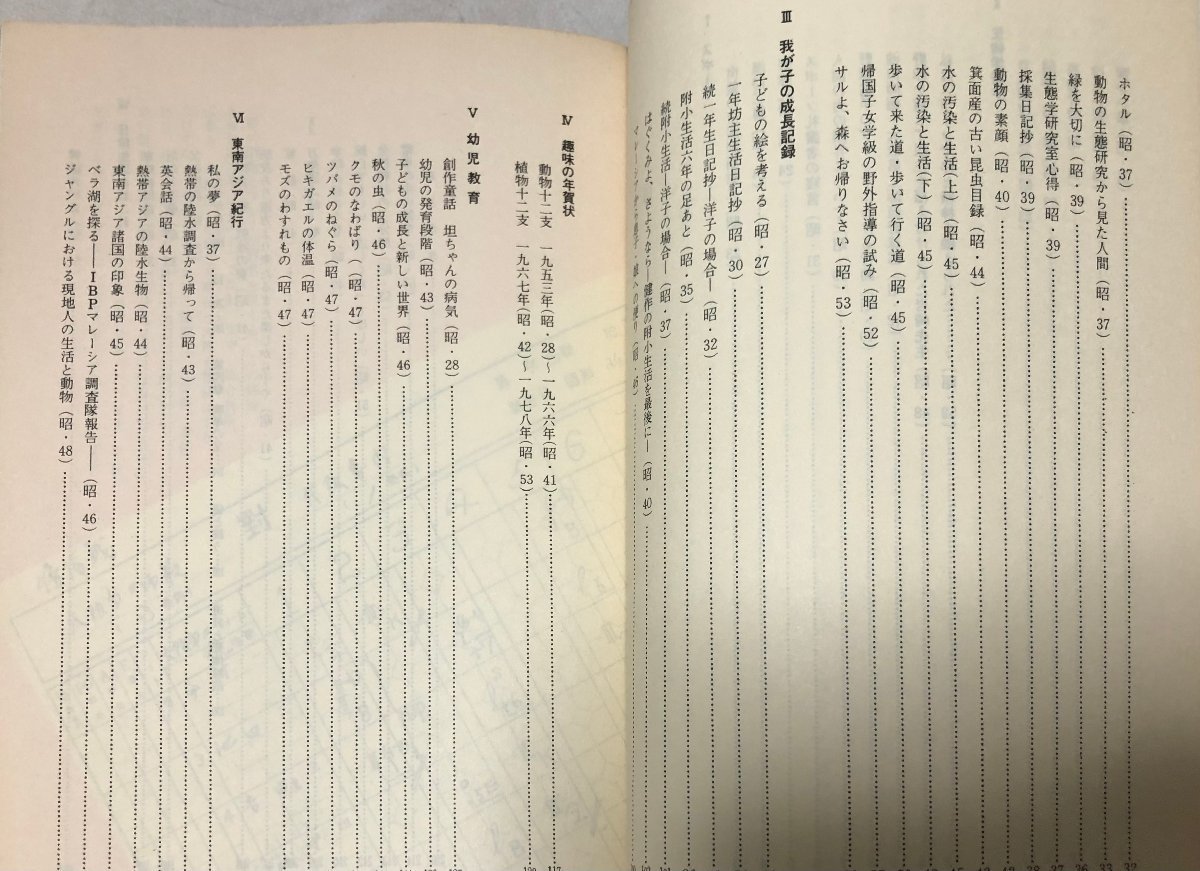 ホタル（昭・37）
動物の生態研究から見た人間（昭・37）
緑を大切に（昭・39）
生態学研究室心得（昭・39）
採集日記抄（昭・39）
動物の素顔（昭・40）
箕面産の古い昆虫目録（昭・44）
水の汚染と生活（上）（昭・45）
水の汚染と生活（下）（昭・45）
歩いて来た道・歩いて行く道（昭・45）
帰国子女学級の野外指導の試み（昭・52）
サルよ、森へお帰りなさい（昭・53）
Ⅲ 我が子の成長記録
子どもの絵を考える（昭・27）
一年坊主生活日記抄（昭・30）
続一年生日記抄―洋子の場合―（昭・32）
附小生活六年の足あと（昭・35）
続附小生活―洋子の場合―（昭・37）
はぐくみよ、さようなら―健作の附小生活を最後に―（昭・40）
Ⅳ 趣味の年賀状
動物十二支 一九五三年（昭・28）～一九六六年（昭・41） 117
植物十二支 一九六七年（昭・42）～一九七八年（昭・53）
Ⅴ 幼児教育
創作童話 坦ちゃんの病気（昭・28）
幼児の発育段階（昭・43）
子どもの成長と新しい世界（昭・46）
秋の虫（昭・46）
クモのなわばり（昭・47）
ツバメのねぐら（昭・47）
ヒキガエルの体温（昭・47）
モズのわすれもの（昭・47）
Ⅵ 東南アジア紀行
私の夢（昭・37）
熱帯の陸水調査から帰って（昭・43）
英会話（昭・44）
熱帯アジアの陸水生物（昭・44）
東南アジア諸国の印象（昭・45）
ベラ湖を探る――IBPマレーシア調査隊報告――（昭・46）
ジャングルにおける現地人の生活と動物（昭・48）